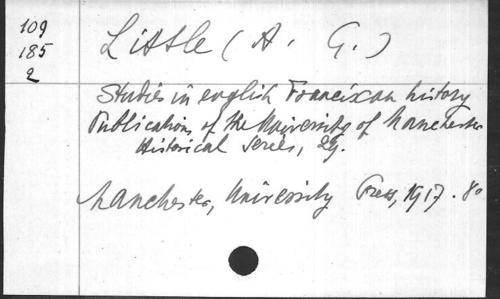 109
185
2
Little (A. G.)
Studies in english Franciscan history
Publications of the University of Manchester
Historical Series, 29.
Manchester, University Press, 1917. 8o